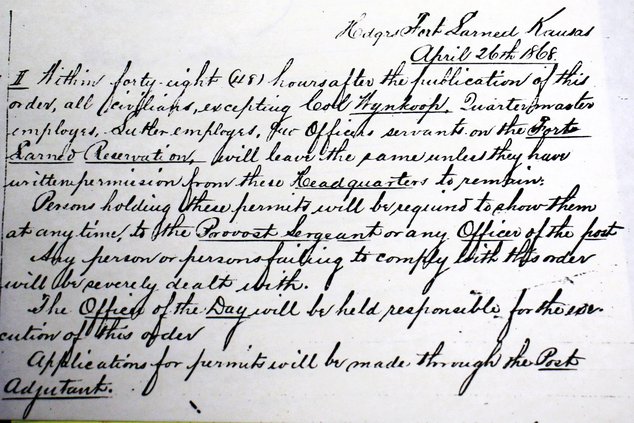 Hdqrs Fort Larned Kansas
April 26th 1868.
II Within forty-eight (48) hours after the publication of this
order, all civilians, excepting Col Wynkoop, Quartermaster
employes, Sutler employes, Officers servants on the Fort
Larned Reservation, will leave the same unless they have
written permission from these Headquarters to remain.
Persons holding these permits will be required to show them
at any time, to the Provost Sergeant or any Officer of the post
Any person or persons failing to comply with this order
will be severely dealt with.
The Officer of the Day will be held responsible for the exe-
cution of this order
Applications for permits will be made through the Post
Adjutant.